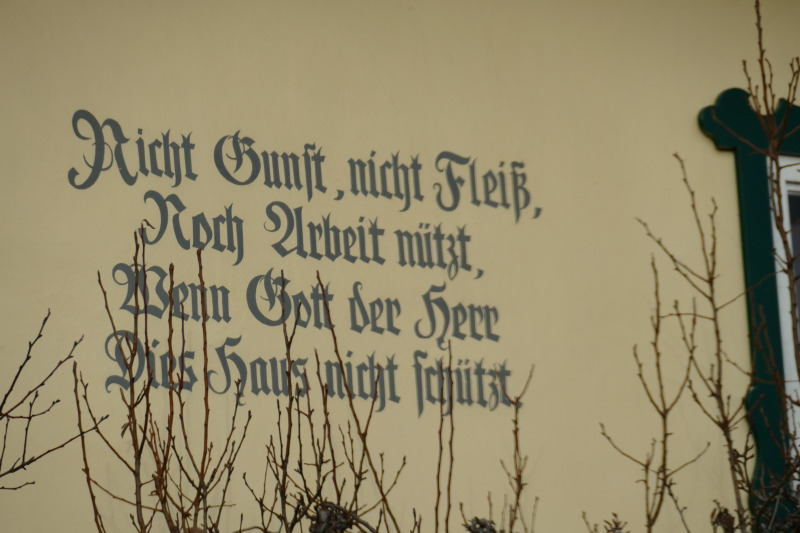 Nicht Gunst, nicht Fleiß,
Noch Arbeit nützt,
Wenn Gott der Herr
Dies Haus nicht schützt.